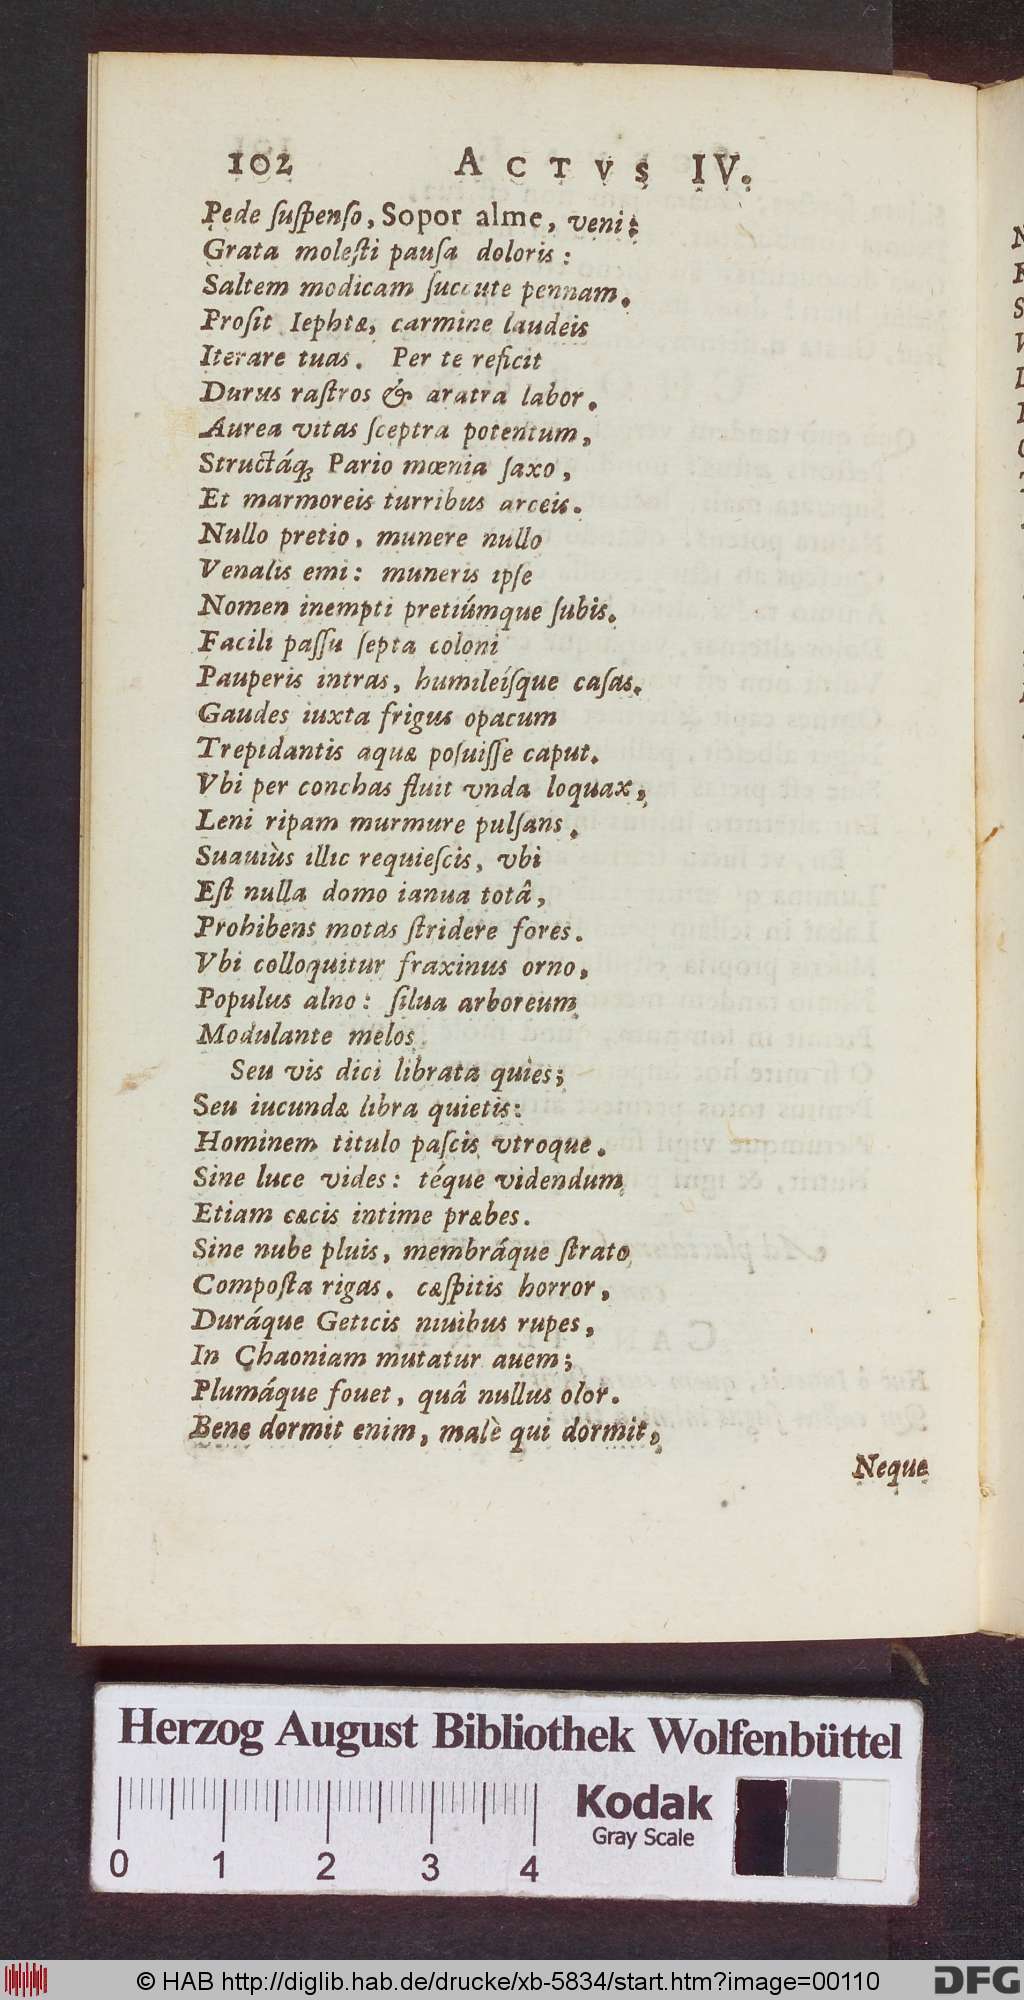 102 ACTVS IV.
Pede ſuſpenſo, Sopor alme, veni:
Grata moleſti pauſa doloris:
Saltem modicam ſuccute pennam.
Proſit Iephtæ, carmine laudeis
Iterare tuas. Per te reficit
Durus raſtros & aratra labor.
Aurea vitas ſceptra potentum,
Structáq; Pario mœnia ſaxo,
Et marmoreis turribus arceis.
Nullo pretio, munere nullo
Venalis emi: muneris ipſe
Nomen inempti pretiúmque ſubis.
Facili paſſu ſepta coloni
Pauperis intras, humileíſque caſas.
Gaudes iuxta frigus opacum
Trepidantis aquæ poſuiſſe caput.
Vbi per conchas fluit vnda loquax,
Leni ripam murmure pulſans.
Suauiùs illic requieſcis, vbi
Eſt nulla domo ianua totâ,
Prohibens motas ſtridere fores.
Vbi colloquitur fraxinus orno,
Populus alno: ſilua arboreum
Modulante melos.
Seu vis dici librata quies;
Seu iucundæ libra quietis:
Hominem titulo paſcis vtroque.
Sine luce vides: téque videndum
Etiam cæcis intime præbes.
Sine nube pluis, membráque ſtrato
Compoſta rigas. cæſpitis horror,
Duráque Geticis niuibus rupes,
In Chaoniam mutatur auem;
Plumáque fouet, quâ nullus olor.
Bene dormit enim, malè qui dormit,
Neque
Herzog August Bibliothek Wolfenbüttel
0 1 2 3 4
Kodak
Gray Scale
© HAB http://diglib.hab.de/drucke/xb-5834/start.htm?image=00110
DFG